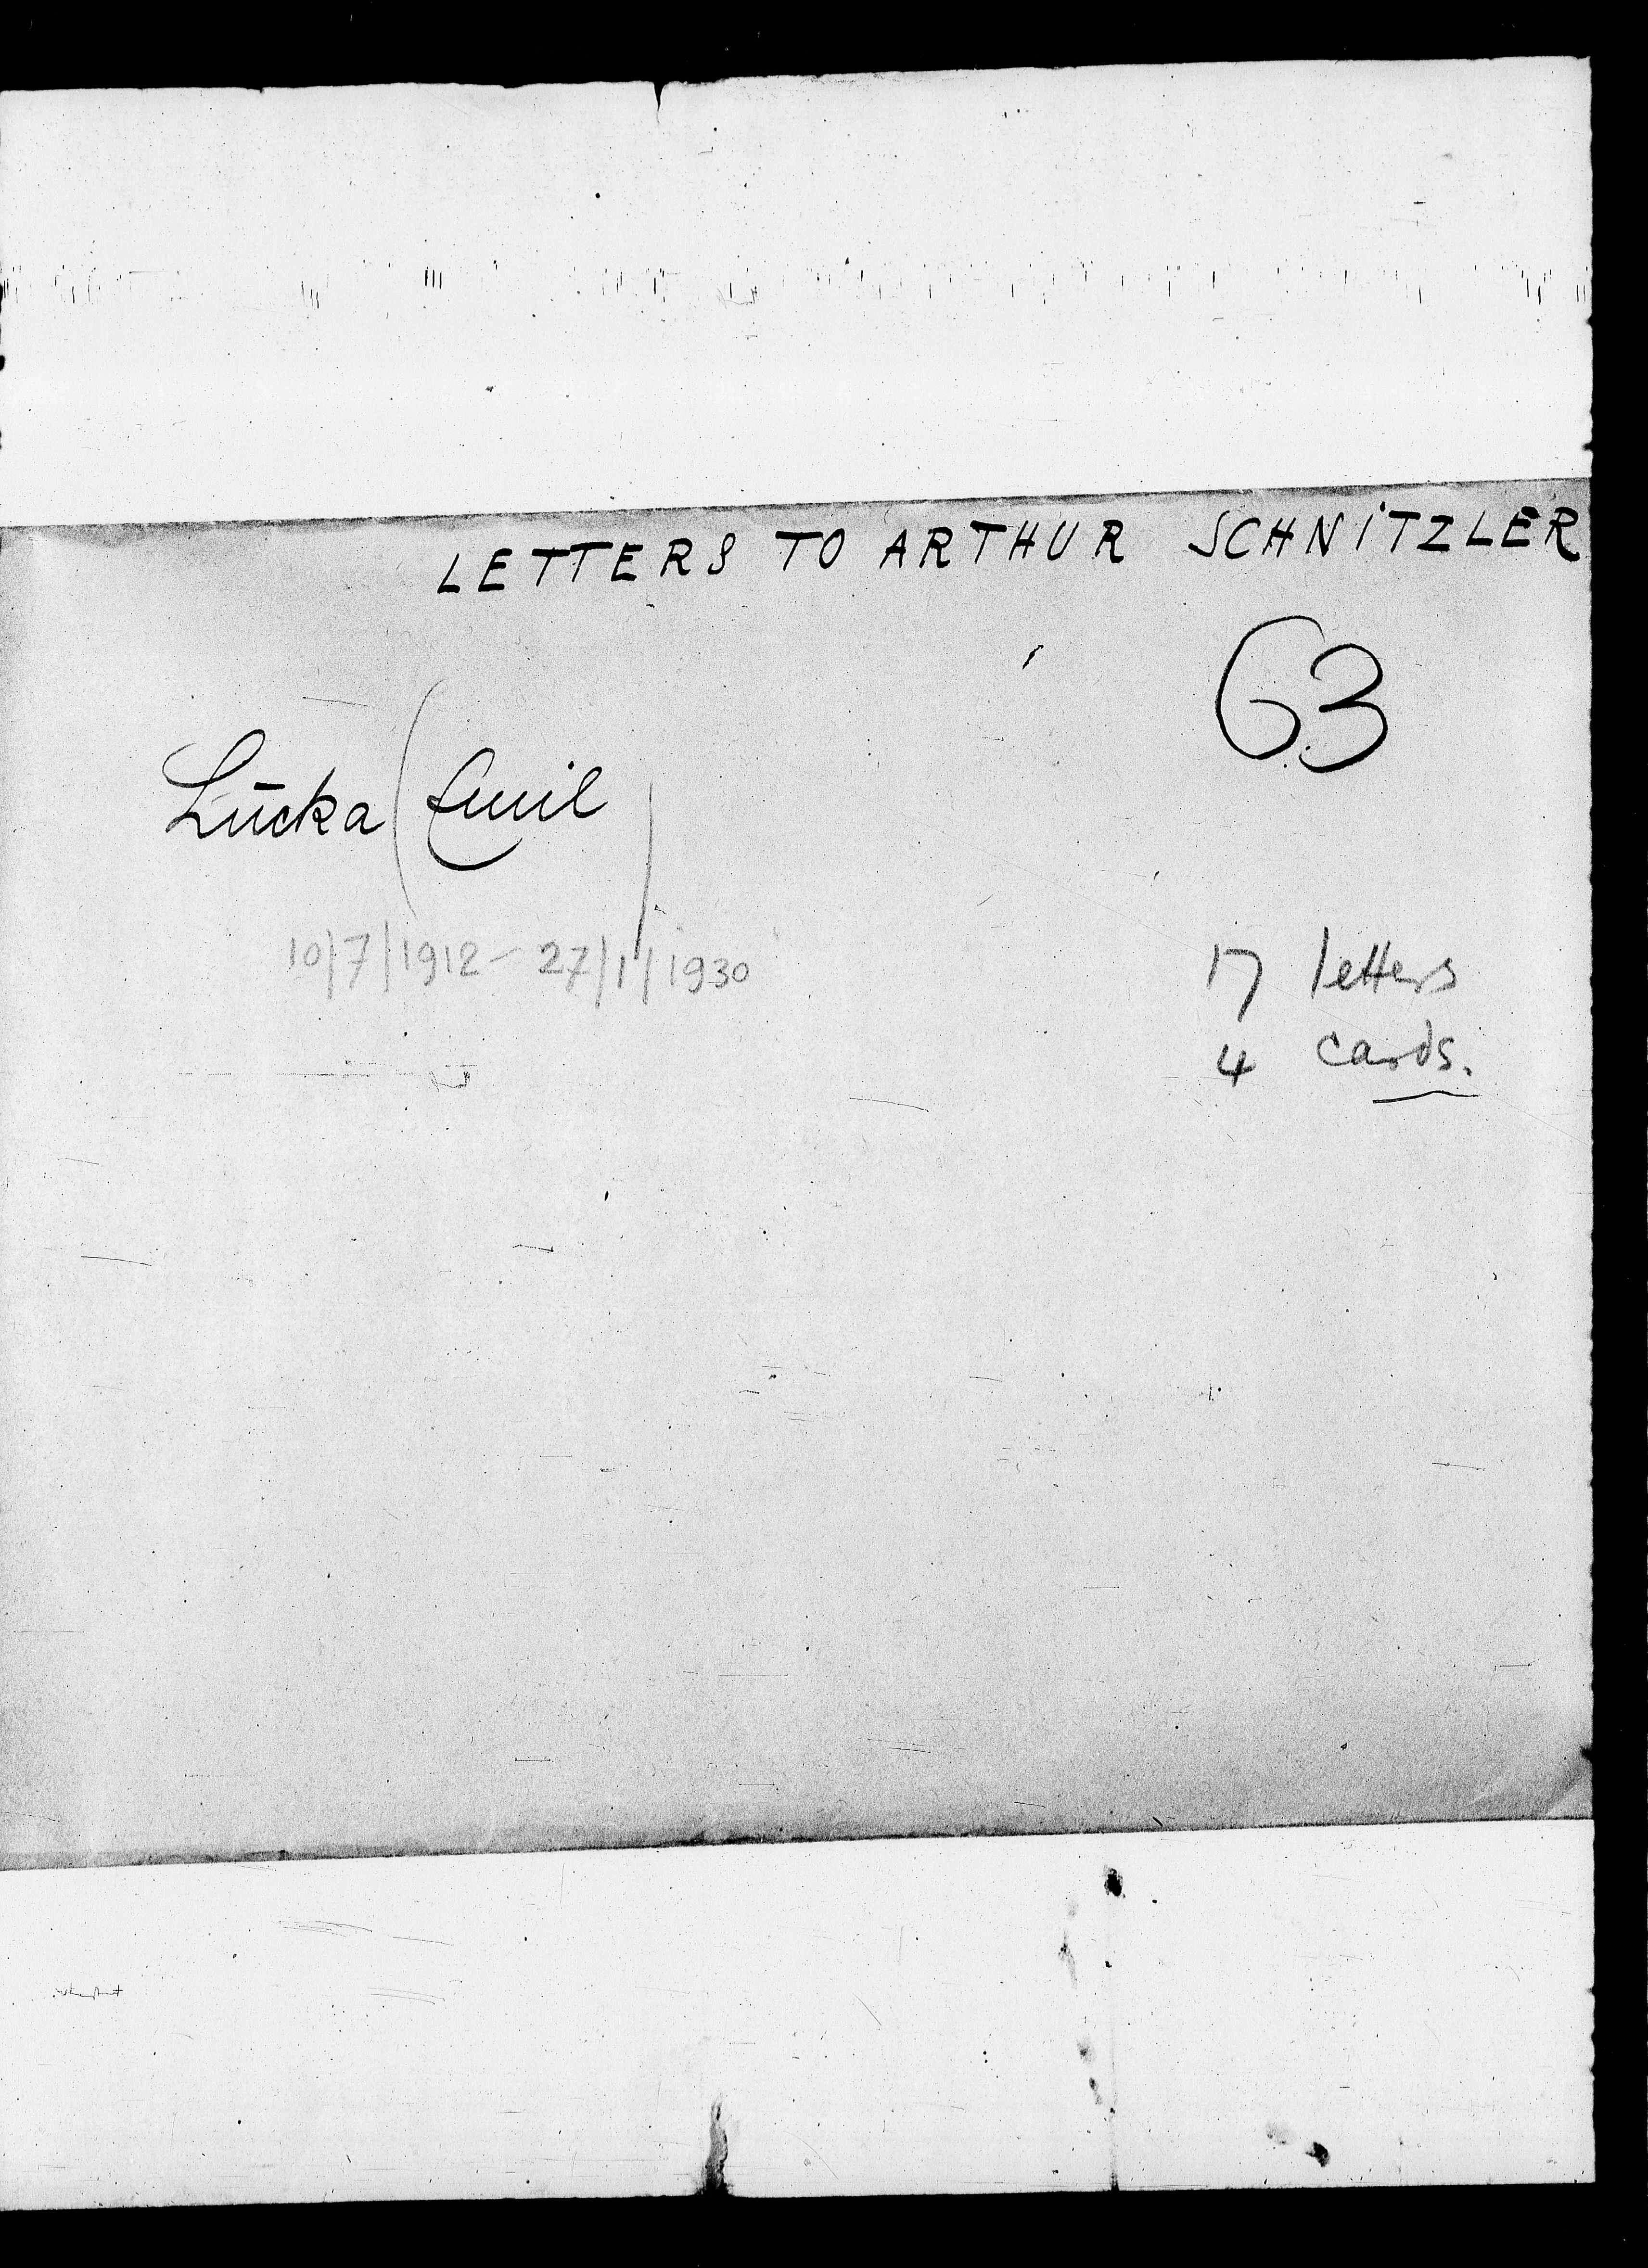 LETTERS TO ARTHUR SCHNITZLER
63
Lūcka (Emil)
10/7/1912 - 27/1/1930
17 letters
4 cards.